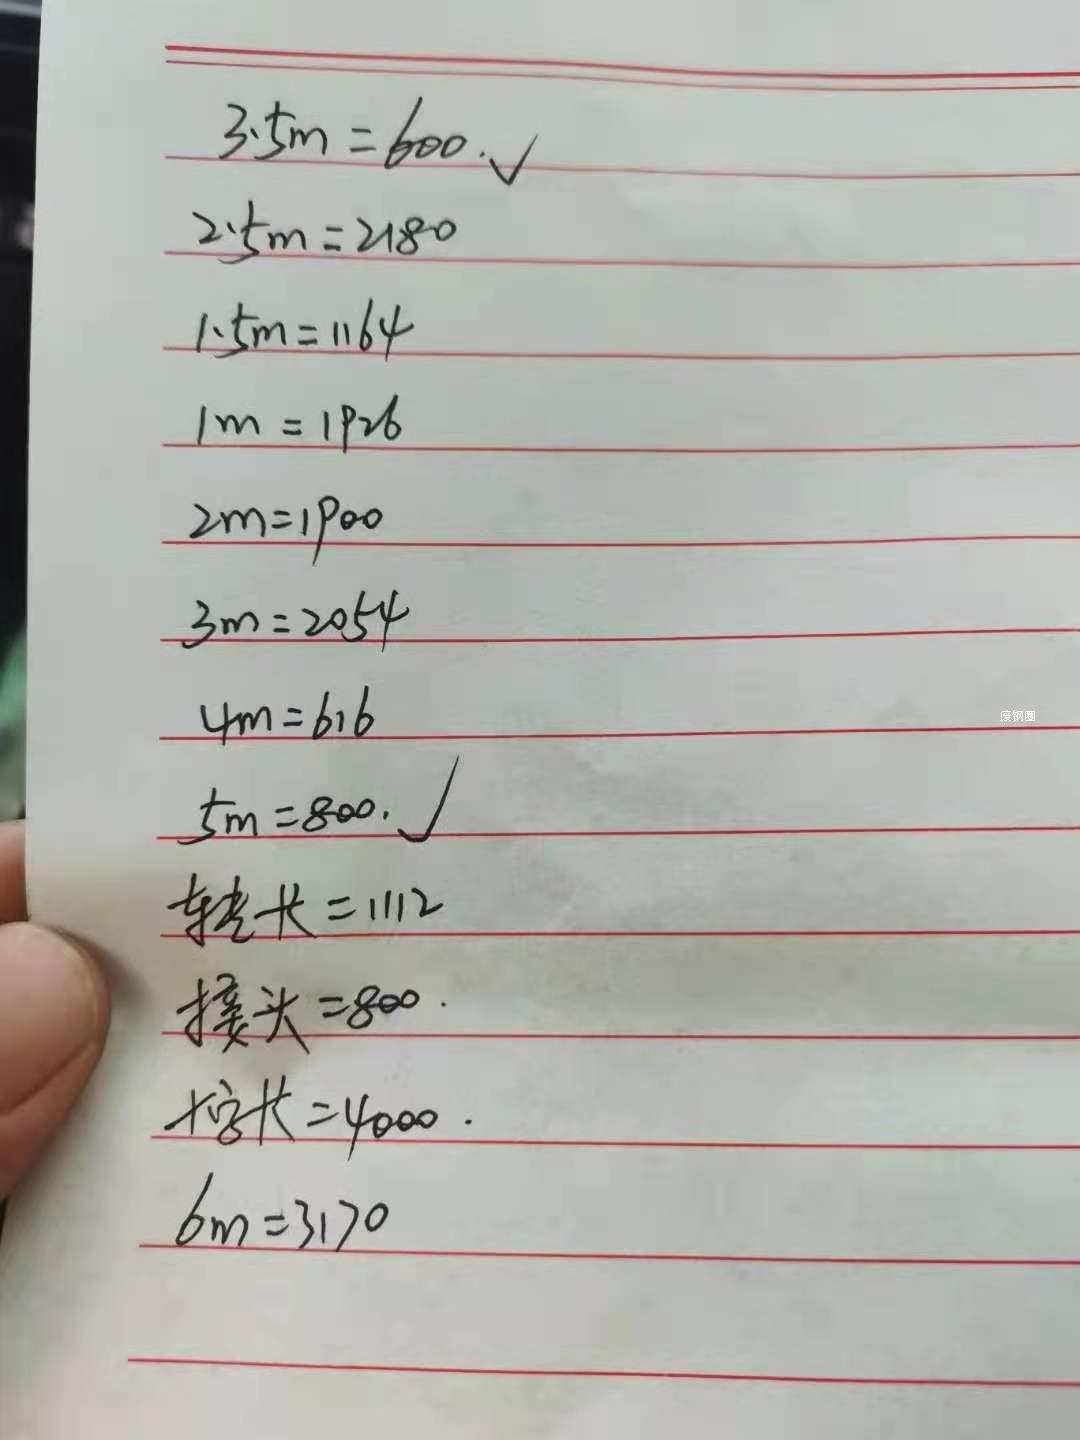 3.5m=600.✓
2.5m=2180
1.5m=1164
1m=1926
2m=1900
3m=2054
4m=616
废钢圈
5m=800.✓
转先卡=1112
接头=800.
十字卡=4000.
6m=3170